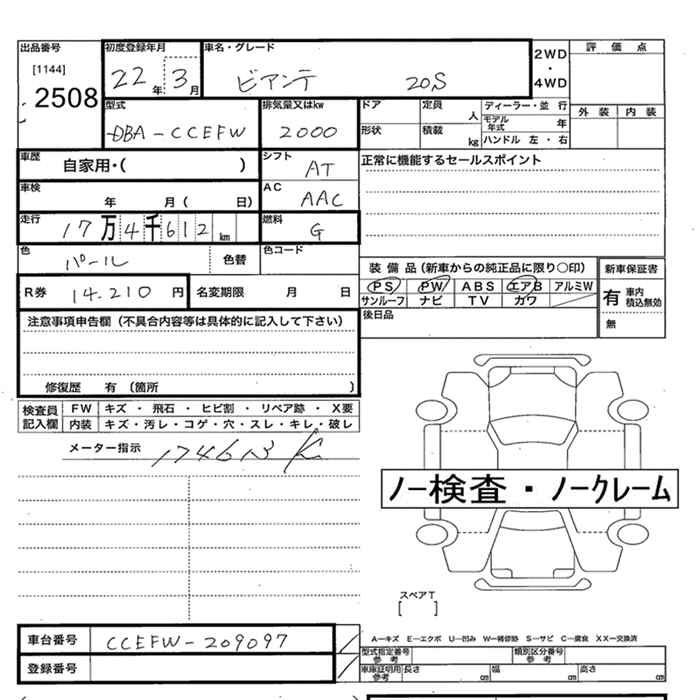 出品番号 初度登録年月 車名・グレード 2WD・4WD 評価点
[1144] 2508 22年 3月 ビアンテ 20S 外装 内装
型式 排気量又はkw ドア 定員 人 ディーラー・並 行
DBA-CCEFW 2000 形状 積載 kg モデル年式 年 ハンドル 左・右
車歴 自家用・( ) シフト AT 正常に機能するセールスポイント
車検 年 月( 日) AC AAC
走行 17万4千612km 燃料 G
色 パール 色替 色コード
装備品(新車からの純正品に限り○印) 新車保証書
R券 14.210円 名変期限 月 日 PS PW ABS エアB アルミW 有 車内積込無効
サンルーフ ナビ TV カワ 無
注意事項申告欄(不具合内容等は具体的に記入して下さい) 後日品
修復歴 有(箇所 )
検査員記入欄 FW キズ・飛石・ヒビ割・リペア跡・X要
内装 キズ・汚レ・コゲ・穴・スレ・キレ・破レ
メーター指示 174613 K
ノー検査・ノークレーム
スペアT
[ ]
車台番号 CCEFW-209097 A―キズ E―エクボ U―凹み W―補修跡 S―サビ C―腐食 XX―交換済
型式指定番号 参考 類別区分番号 参考
登録番号 車庫証明用 参考 長さ cm 幅 cm 高さ cm